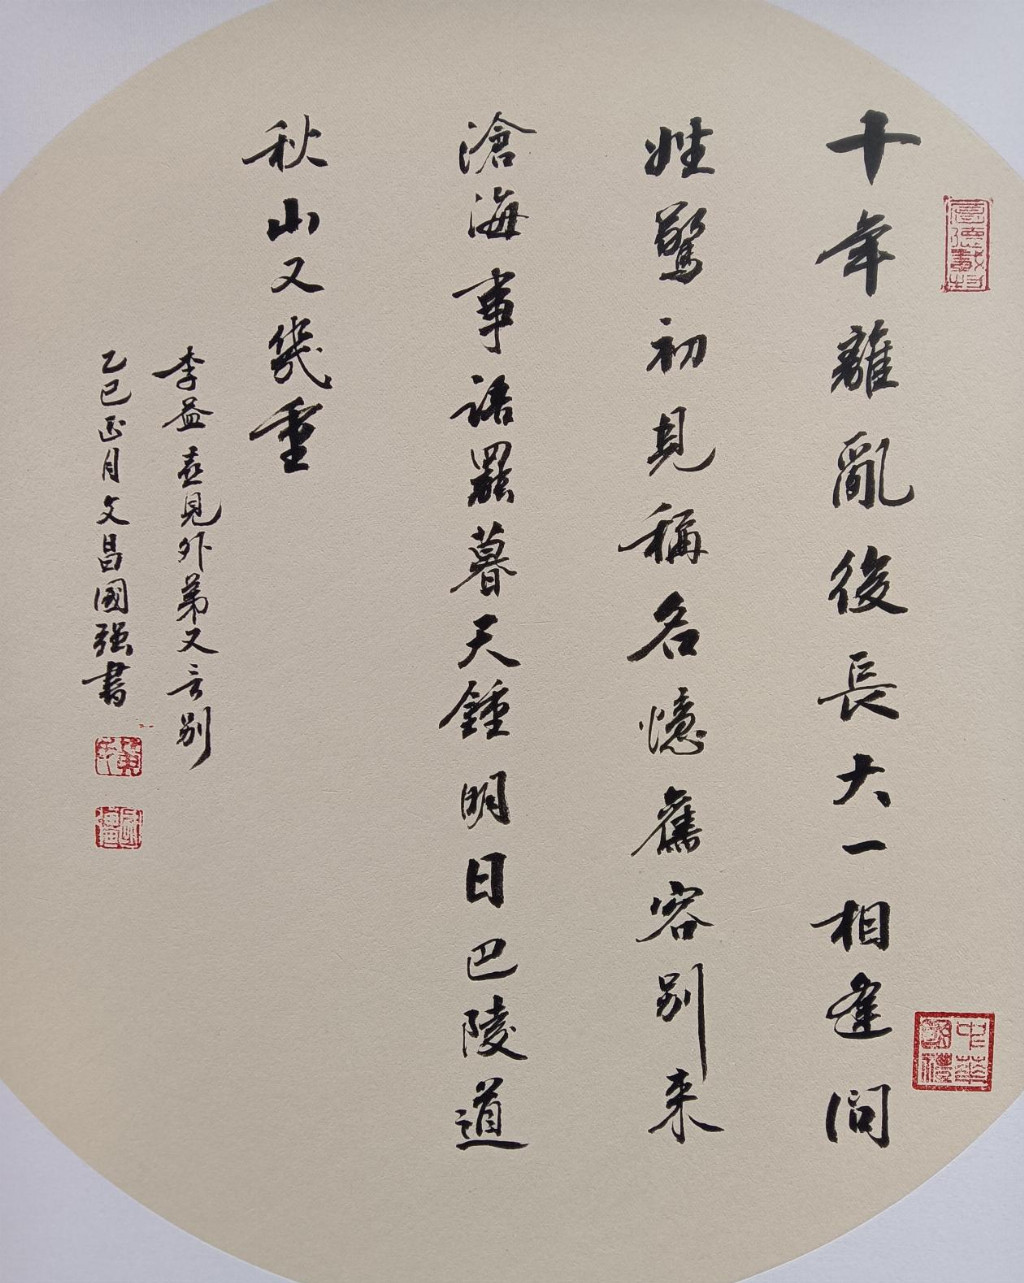 厚德載物
十年離亂後長大一相逢問
姓驚初見稱名憶舊容别来
滄海事語罷暮天鍾明日巴陵道
秋山又幾重
李益喜見外弟又言别
乙巳正月文昌國强書
中華國禮